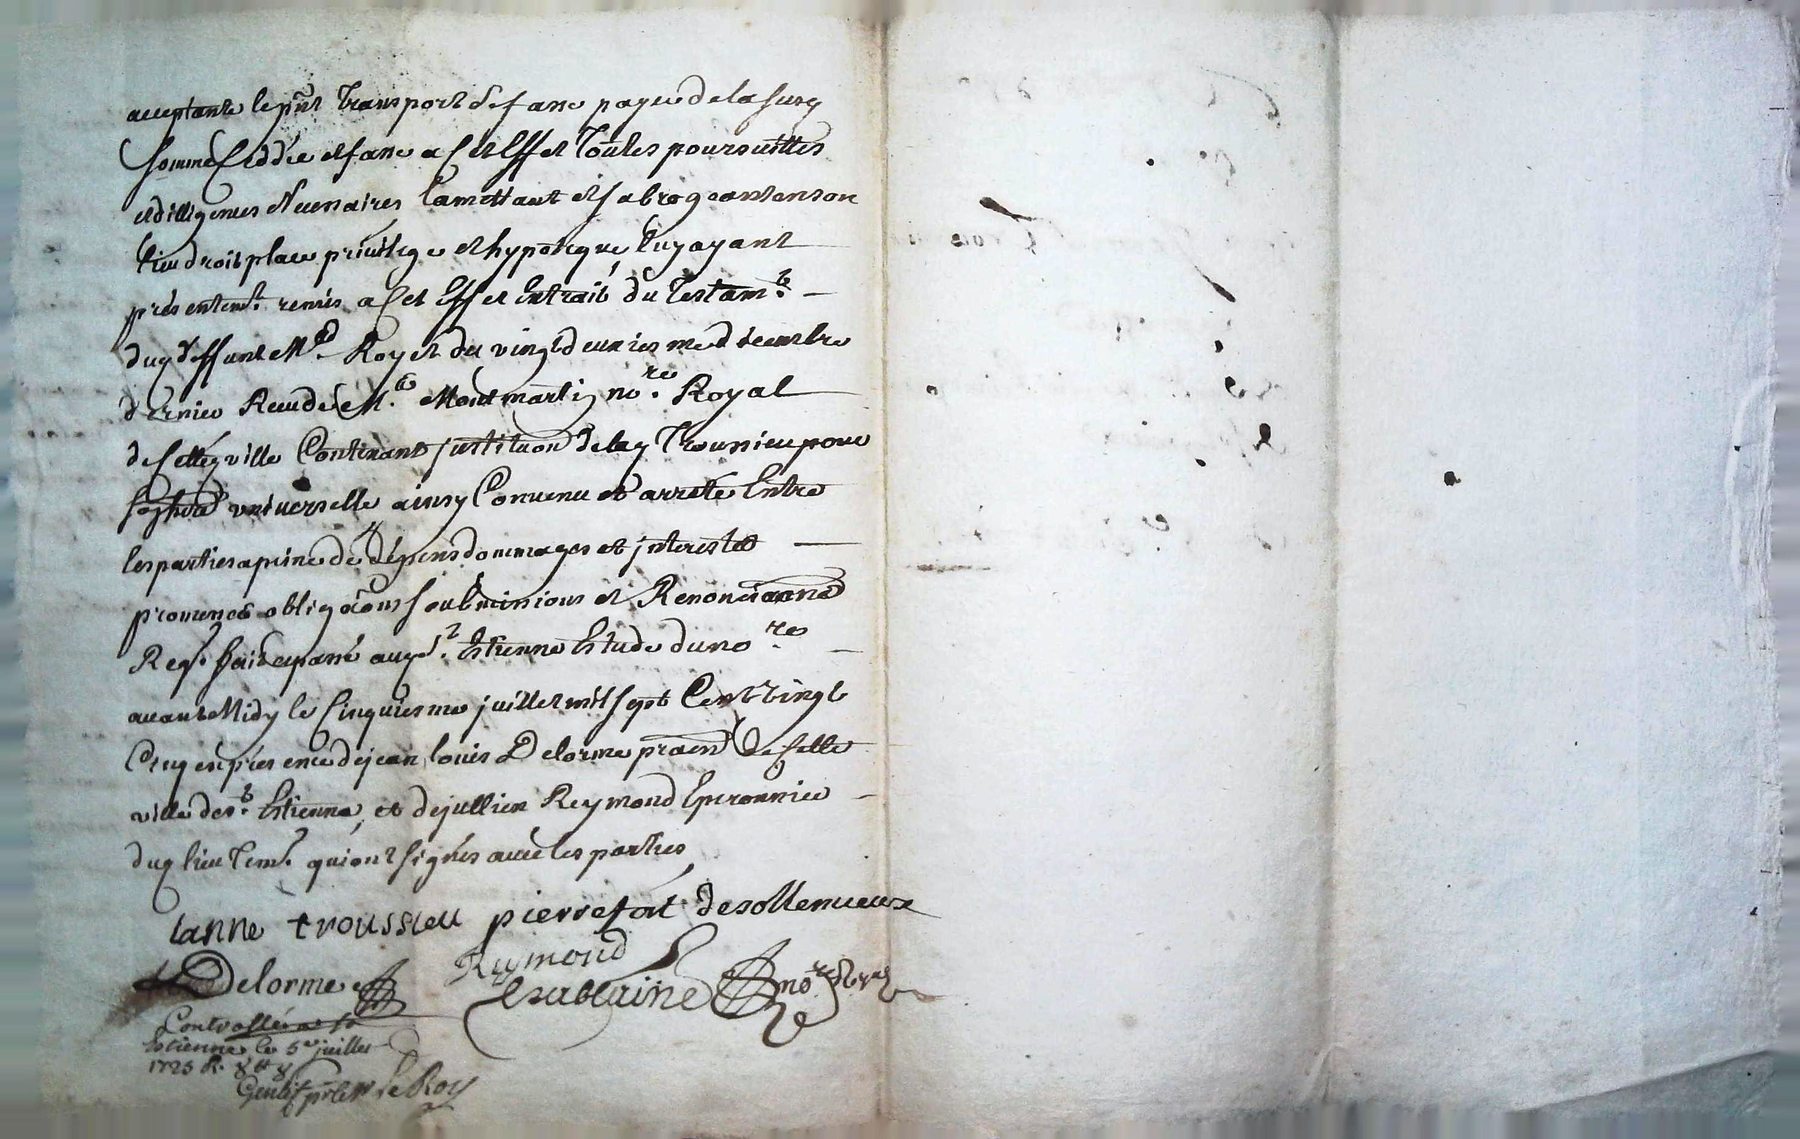 acceptante le pñt Transport Se faire payer de la susd
Somme Ceddée et faire a Cet Effet Toutes poursuittes
et dilligences Necenaires lamettant et sabrogeant en son
lieu droit place privilege et hypoteque luy ayant
présentemt. remis a Cet Effet Extrait du Testamt.
dud deffunt Mr. Royet du vingt deuxiesme décembre
dernier Receu de Me. Montmartin nore. Royal
de Cette ville Contenant justitution de lad Troussieu pour
universelle ainsy Convenu et arreté Entre
les parties a peine de dépens dommages et jnterests
promenes obligãons soubmissions et Renonciaons
Reqs. fait et passé aud St. Estienne Estude du nore
avant Midy le Cinquiesme juillet mil sept Cent vingt
Cinq en présence de jean louis Delorme praen de Cette
ville de St. Estienne, et de jullien Reymond Eperonnier
dud lieu Temt. qui ont signés avec les parties
anne troussieu pierrefort desollemieux
Delorme Reymond
Chablaine nore Royal
Controllé a St
Estienne le 5e juillet
1725 R.
le Roy